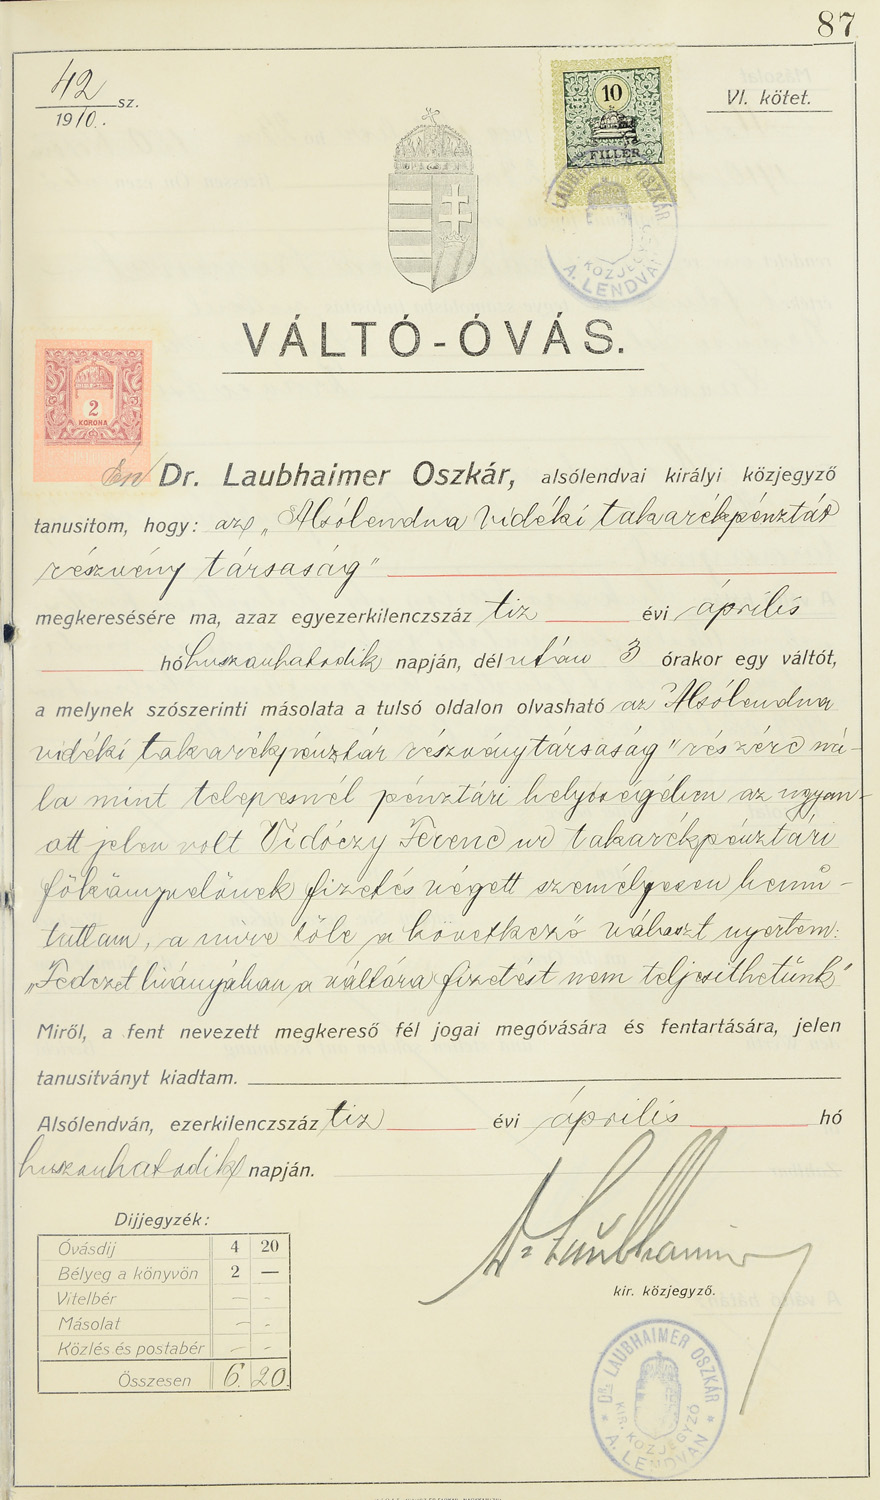 87
42 sz.
1910.
VI. kötet.
10
FILLÉR
LAUBHAIMER OSZKÁR
KÖZJEGYZŐ
A. LENDVAN
VÁLTÓ-ÓVÁS.
2
KORONA
Én Dr. Laubhaimer Oszkár, alsólendvai királyi közjegyző
tanusitom, hogy: az „Alsólendva vidéki takarékpénztár
részvény társaság"
megkeresésére ma, azaz egyezerkilenczszáz tiz évi április
hó huszonhatodik napján, délután 3 órakor egy váltót,
a melynek szószerinti másolata a tulsó oldalon olvasható az „Alsólendva
vidéki takarékpénztár részvénytársaság" részére ná-
la mint telepesnél pénztári helyiségében az ugyan-
ott jelen volt Vidóczy Ferenc ur takarékpénztári
főkönyvelőnek fizetés végett személyesen bemu-
tattam, a mire tőle a következő választ nyertem:
„Fedezet hiányában a váltóra fizetést nem teljesithetünk"
Miről, a fent nevezett megkereső fél jogai megóvására és fentartására, jelen
tanusitványt kiadtam.
Alsólendván, ezerkilenczszáz tiz évi április hó
huszonhatodik napján.
Dijjegyzék:
Óvásdij 4 20
Bélyeg a könyvön 2 —
Vitelbér - -
Másolat - -
Közlés és postabér - -
Összesen 6. 20.
Dr Laubhaimer
kir. közjegyző.
DR. LAUBHAIMER OSZKÁR
KIR. KÖZJEGYZŐ
A. LENDVAN